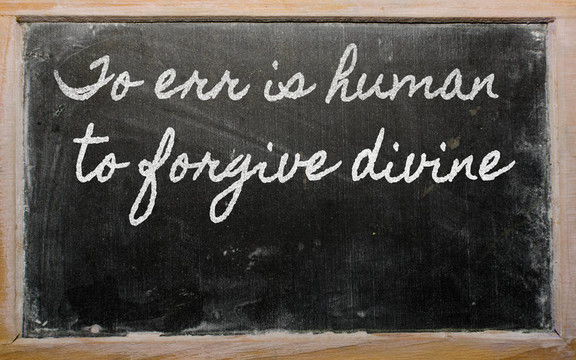 To err is human
to forgive divine